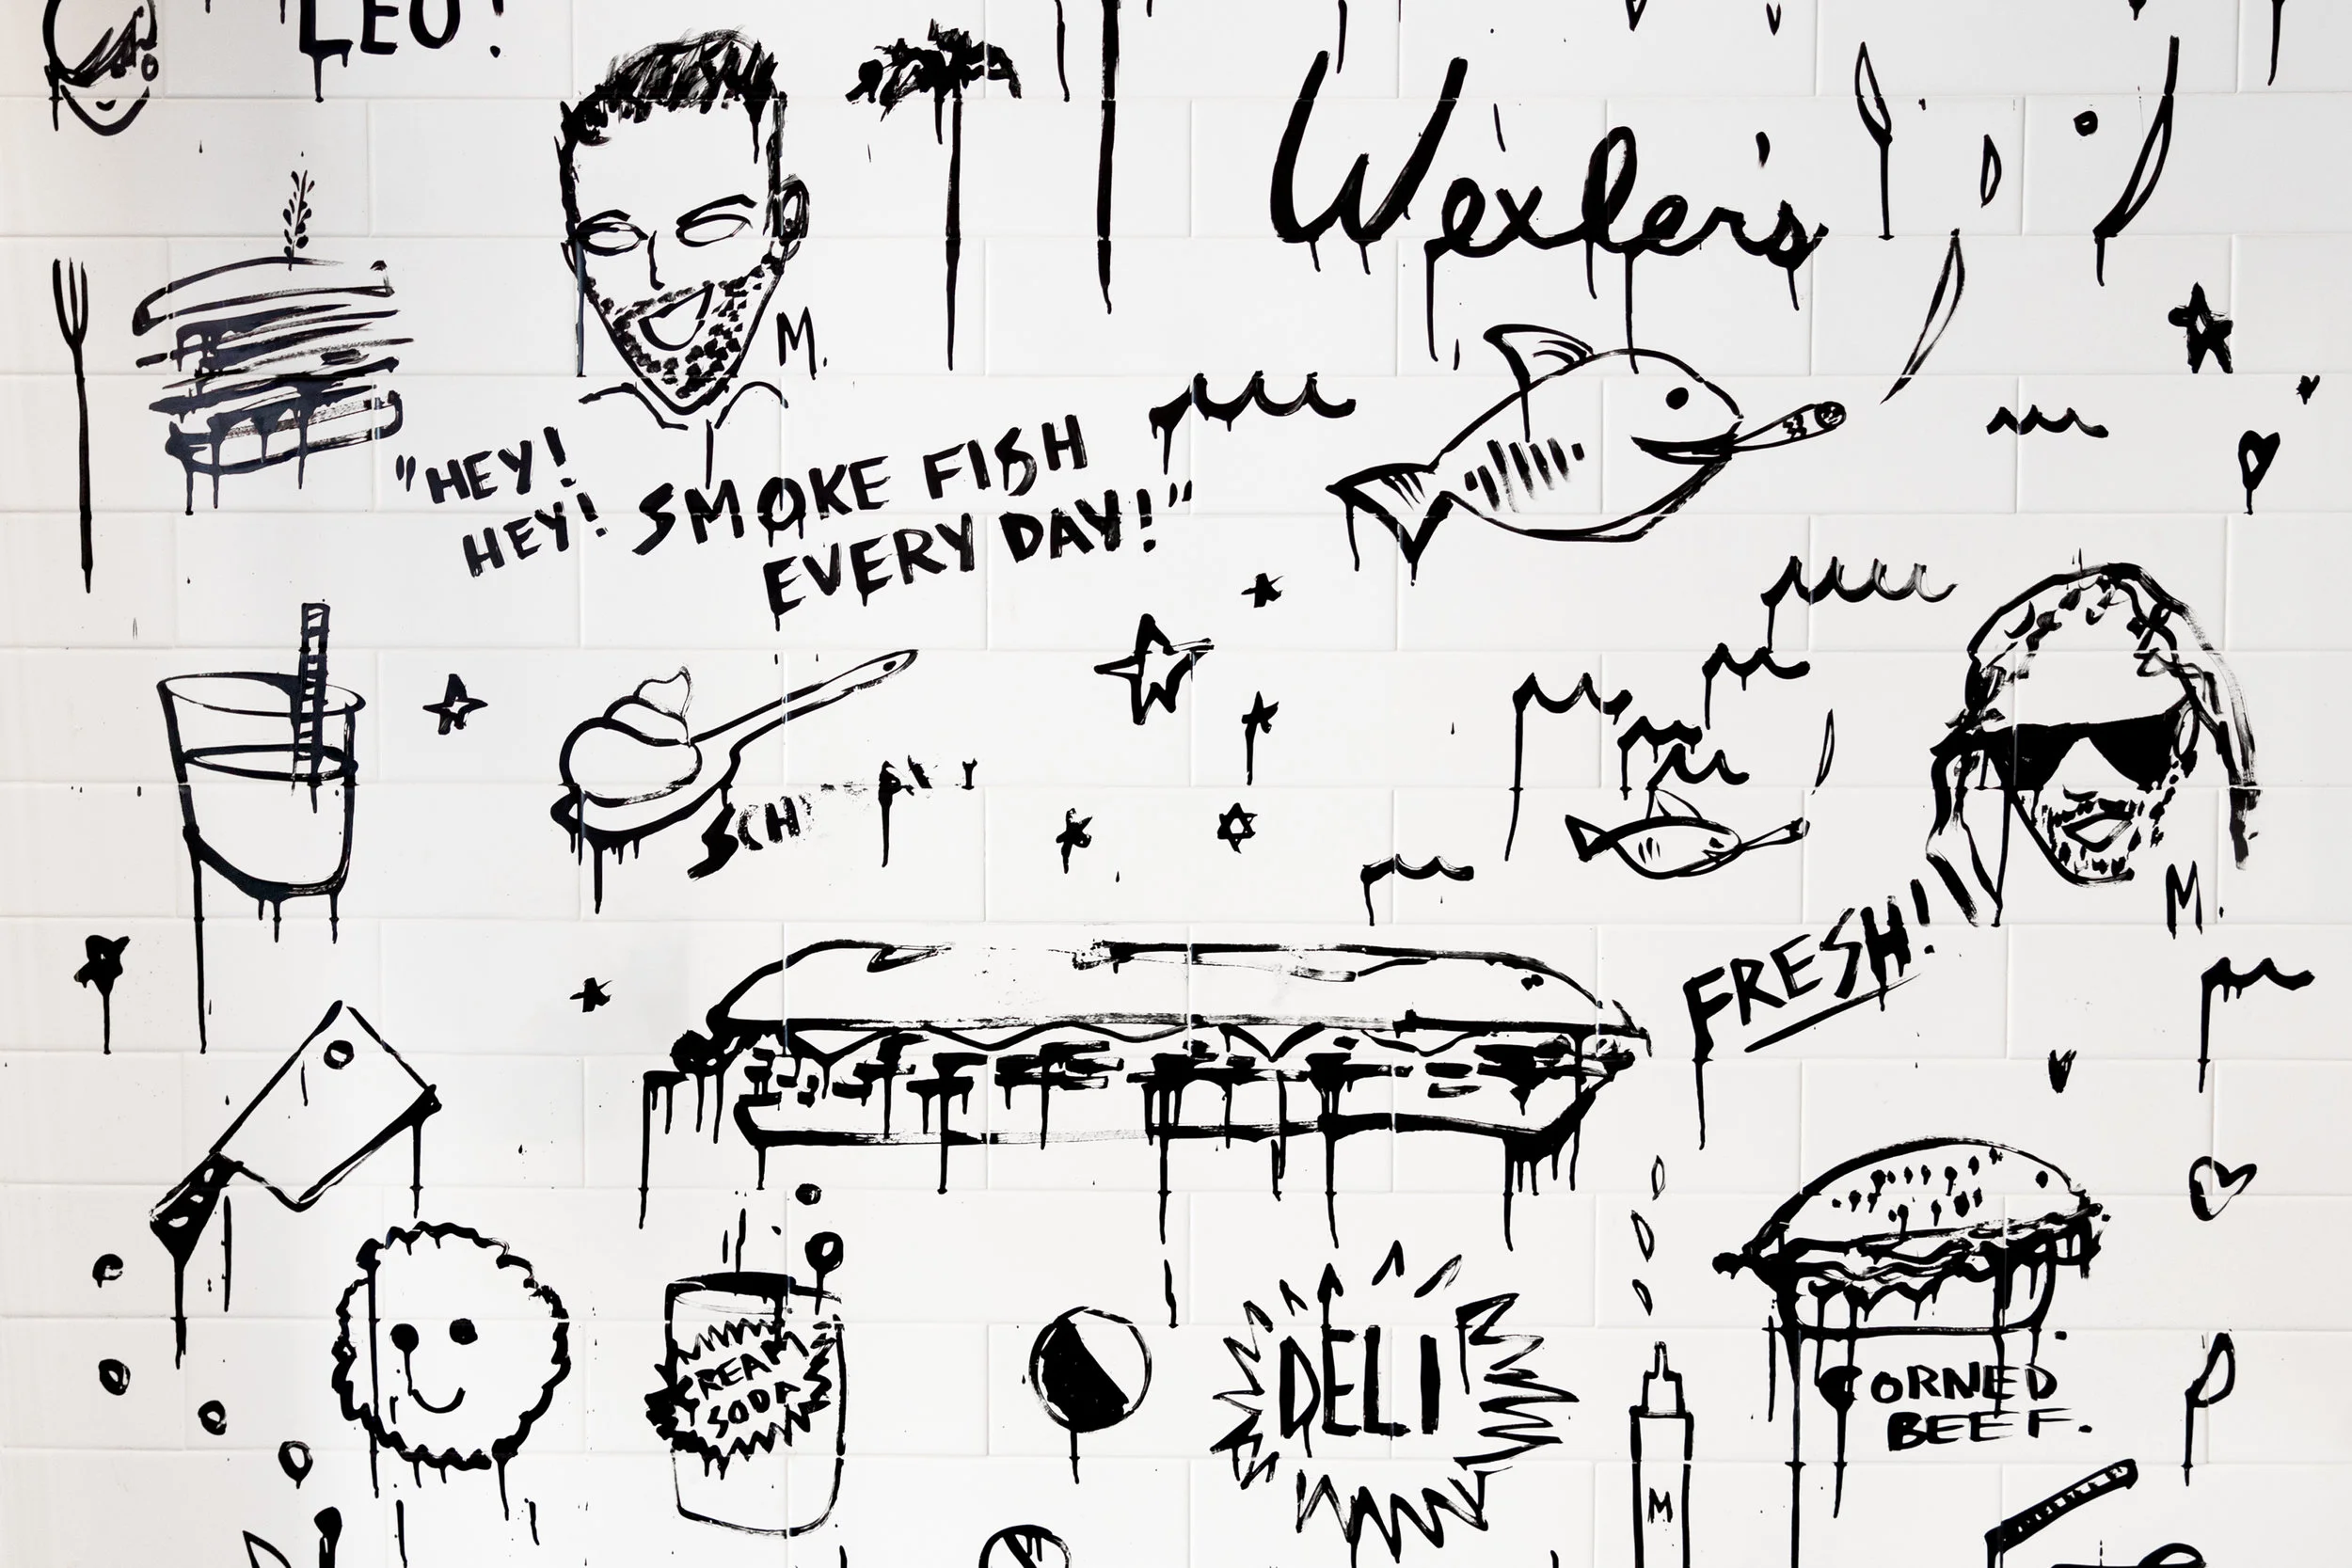 LEO!
Wexler's
M.
"HEY!
HEY! SMOKE FISH
EVERY DAY!"
M.
FRESH!
CREAM
SODA
DELI
CORNED
BEEF.
M